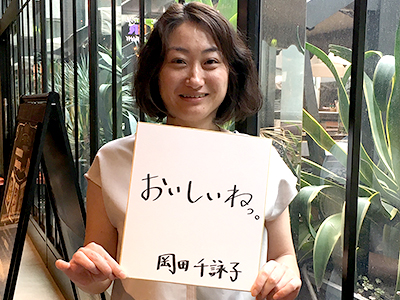 おいしいねっ。
岡田千詠子